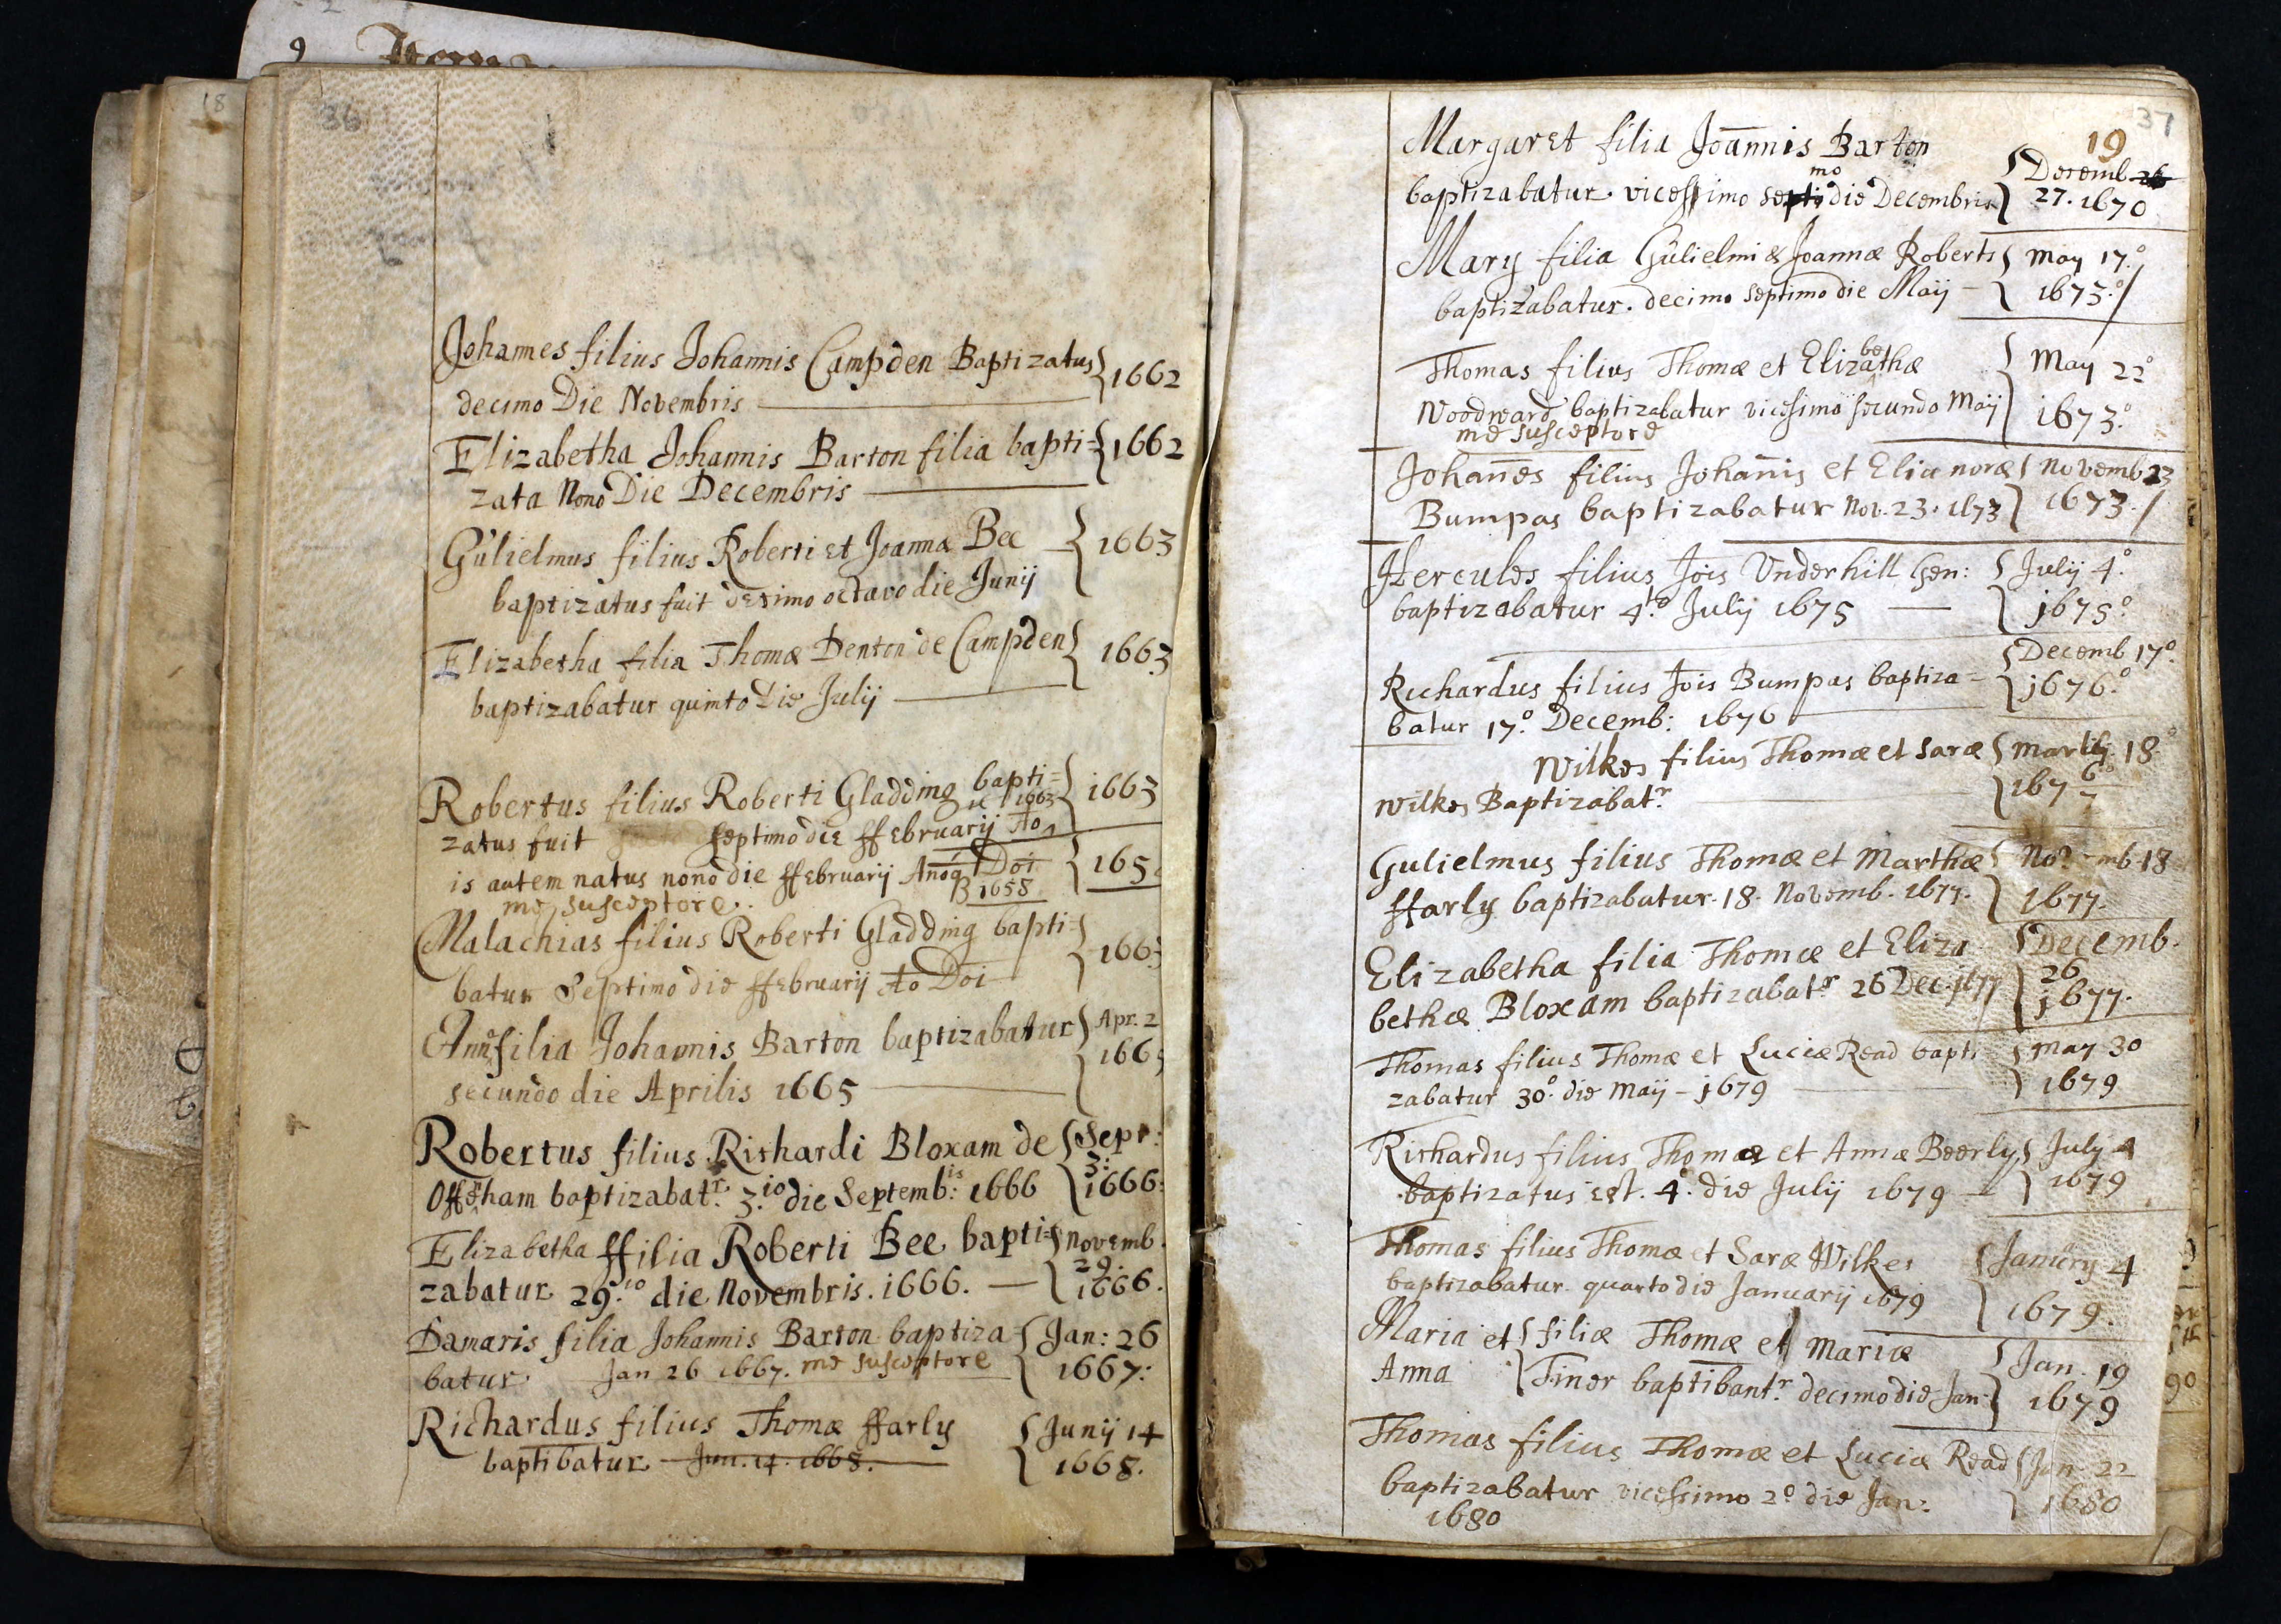 9 Item
18
36
Johannes filius Johannis Campden Baptizatus 1662
decimo Die Novembris
Elizabetha Johannis Barton filia bapti= 1662
zata Nono Die Decembris
Gulielmus filius Roberti et Joannæ Bee 1663
baptizatus fuit decimo octavo die Junij
Elizabetha filia Thomæ Denton de Campden 1663
baptizabatur quinto Die Julij
Robertus filius Roberti Gladding bapti= 1663
1663
zatus fuit septimo die ffebruarij Ao
is autem natus nono die ffebruarij Anoq Doi 165
1658
me susceptore.
Malachias filius Roberti Gladding bapti= 1663
batur Septimo die ffebruarij Ao Doi
Anna filia Johannis Barton baptizabatur Apr. 2
secundo die Aprilis 1665 1665
Robertus filius Richardi Bloxam de Sept:
3:
Offenham baptizabatr. 3.io die Septemb:is 1666 1666:
Elizabetha ffilia Roberti Bee bapti= Novemb.
29.
zabatur 29.io die Novembris. 1666. 1666.
Damaris filia Johannis Barton baptiza Jan: 26
batur Jan 26 1667. me susceptore 1667:
Richardus filius Thomæ ffarly Junij 14
baptibatur Jun. 14. 1668. 1668.
37
19
Margaret filia Joannis Barton
Decemb 26
baptizabatur vicessimo septimo die Decembris 27. 1670
Mary filia Gulielmi & Joannæ Roberts May 17.o
baptizabatur. decimo septimo die Maij 1673.o
Thomas filius Thomæ et Elizabethæ May 22o
Woodward baptizabatur vicesimo secundo Maij 1673.o
me susceptore
Johanes filius Johanis et Elianoræ Novemb 23
Bumpas baptizabatur Nov. 23. 1673 1673.
Hercules filius Jois Underhill Gen: Julij 4.o
baptizabatur 4.to July 1675 1675.o
Decemb 17o.
Richardus filius Jois Bumpas baptiza= 1676.o
batur 17.o Decemb: 1676
Wilkes filius Thomæ et Saræ Martij 18.o
Wilkes Baptizabat.r 167 6/7
Gulielmus filius Thomæ et Marthæ mb 18
ffarly baptizabatur. 18. Novemb. 1677. 1677.
Elizabetha filia Thomæ et Eliza Decemb.
26
bethæ Bloxam baptizabat.r 26 Dec. 1677 1677.
Thomas filius Thomæ et Luciæ Read bapti May 30
zabatur 30.o die Maij - 1679 1679
Richardus filius Thomæ et Annæ Beerly July 4
baptizatus est. 4.o die Julij 1679 1679
Thomas filius Thomæ et Saræ Wilkes Januery 4
baptizabatur quarto die Januarij 1679 1679.
Maria et filiæ Thomæ et Mariæ Jan. 19
Anna Finer baptibant.r decimo die Jan: 1679
Thomas filius Thomæ et Luciæ Read Jan 22
baptizabatur vicessimo 2o die Jan: 1680
1680